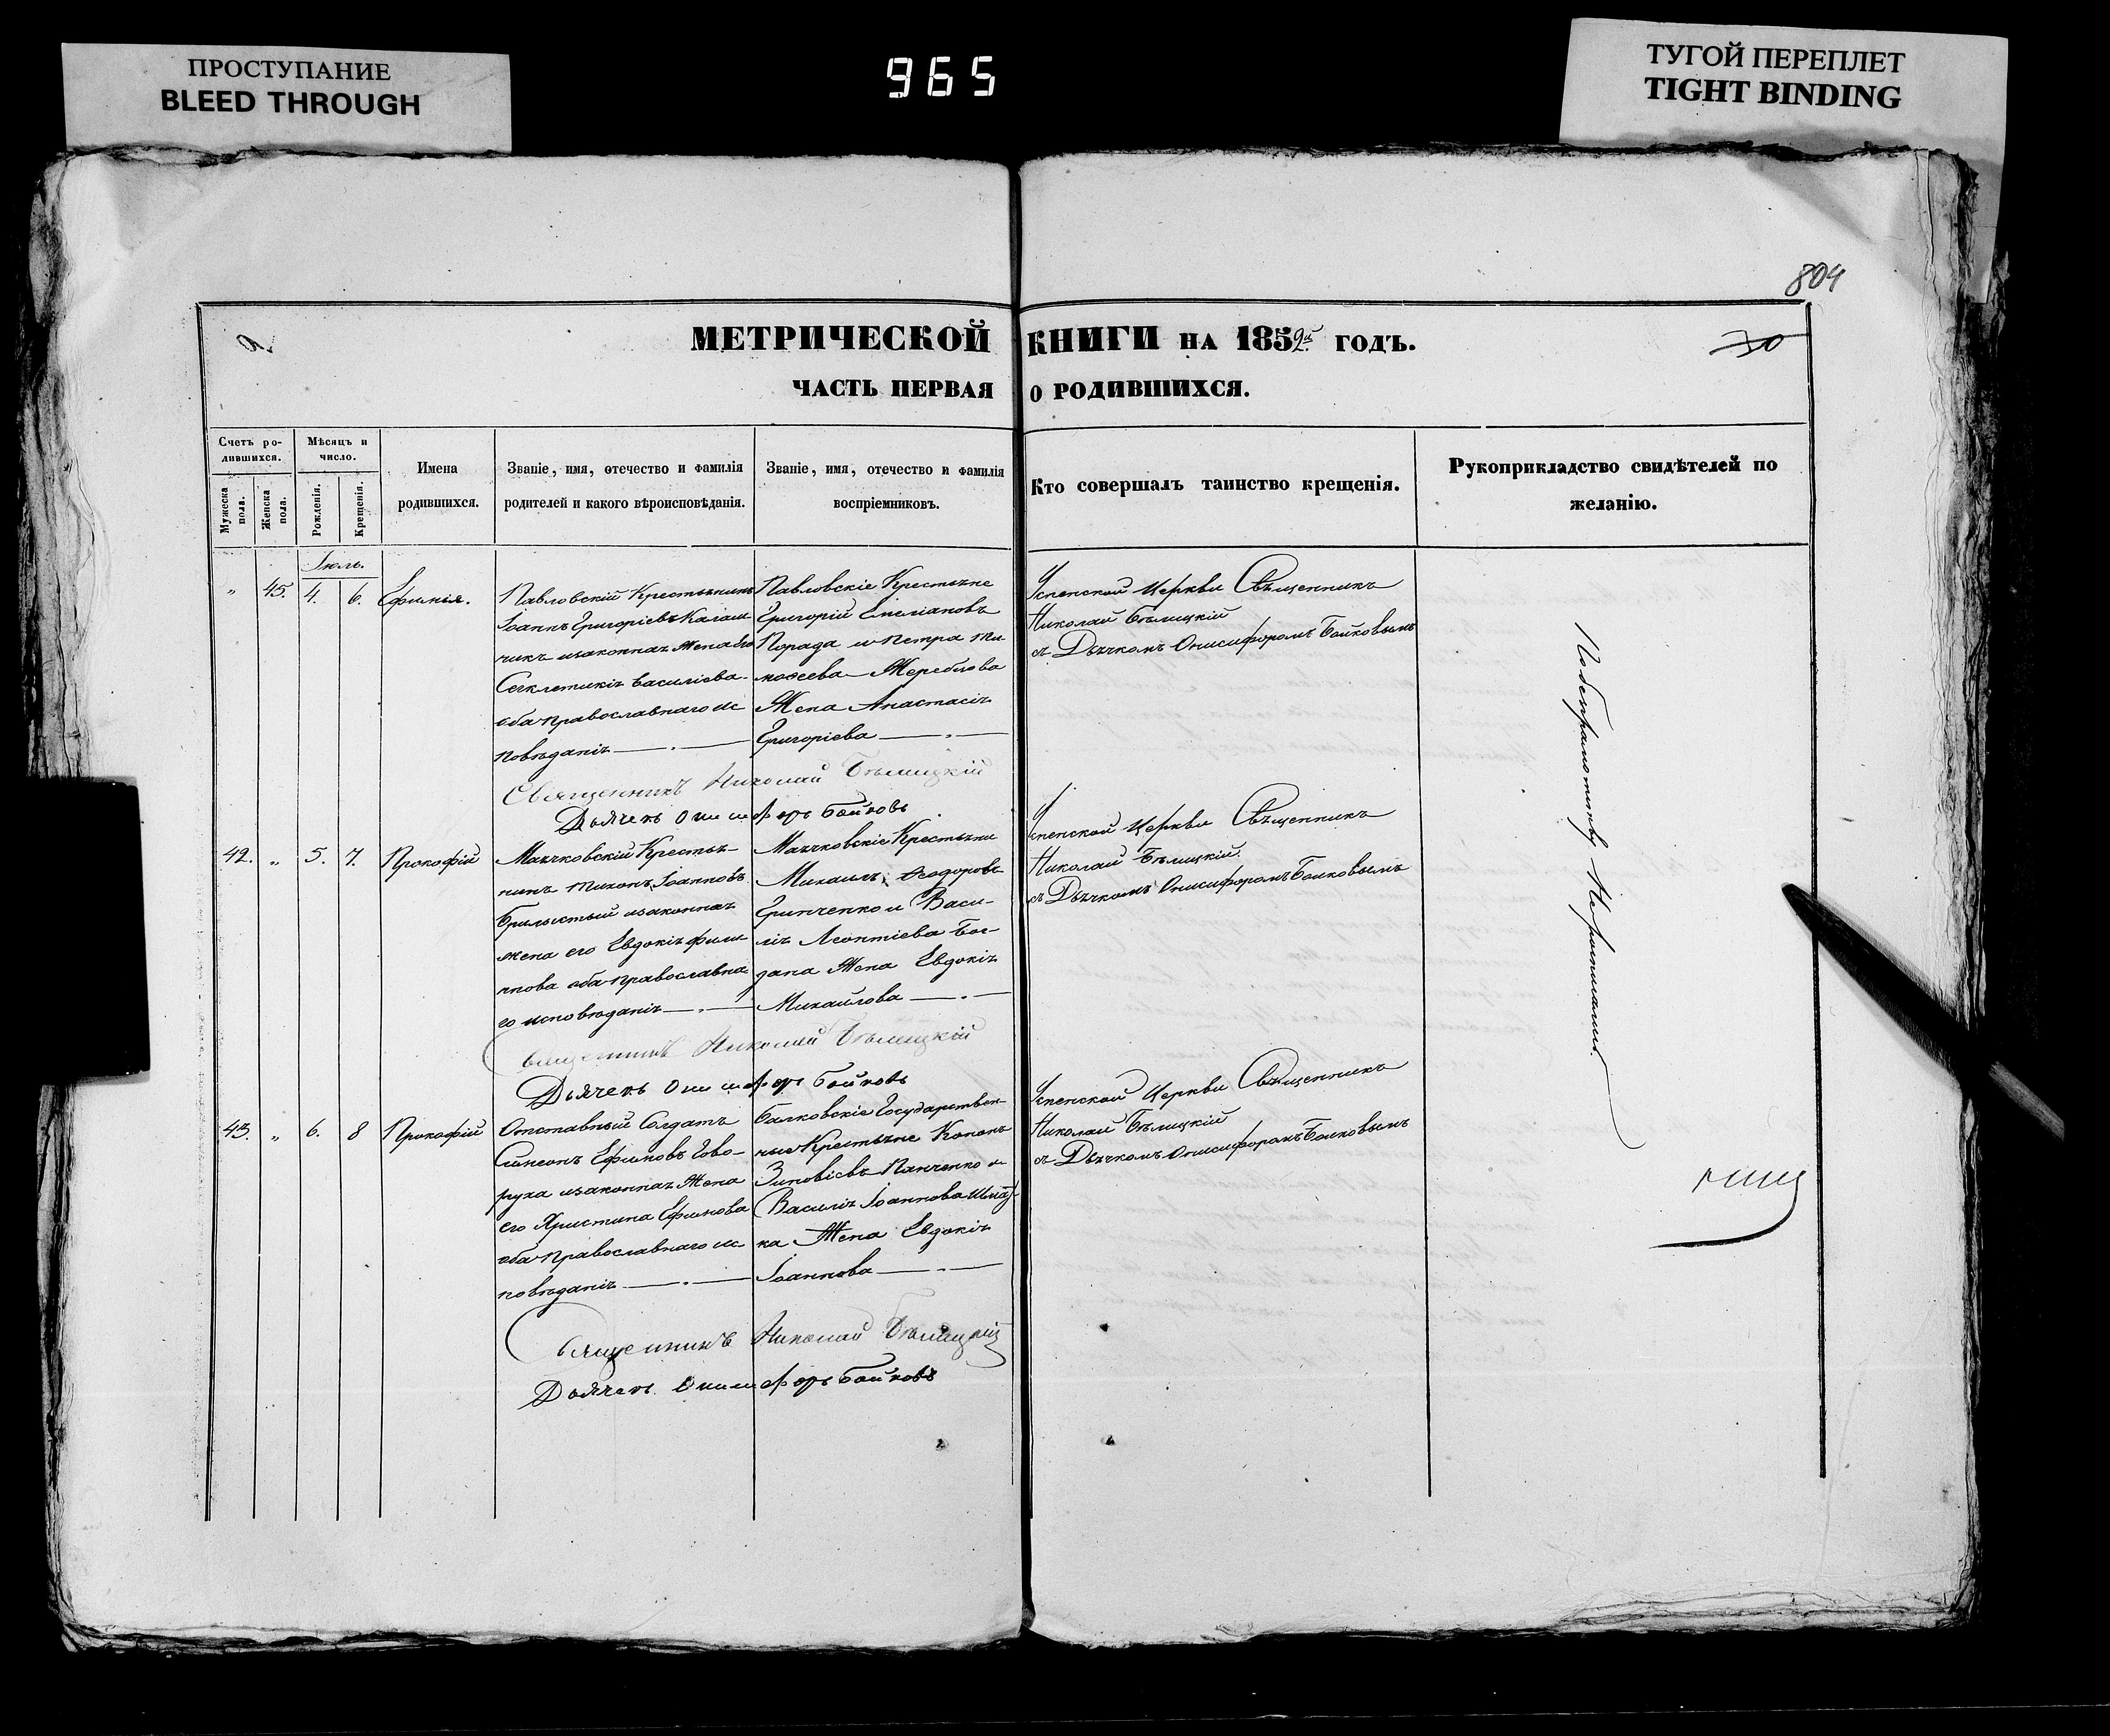 ПРОСТУПАНИЕ
BLEED THROUGH
965
ТУГОЙ ПЕРЕПЛЕТ
TIGHT BINDING
804
МЕТРИЧЕСКОЙ КНИГИ НА 1852й ГОДЪ.
70
ЧАСТЬ ПЕРВАЯ О РОДИВШИХСЯ.
Счетъ ро-
дившихся.
Мужеска
пола.
Женска
пола.
Мѣсяцъ и
число.
Рожденія.
Крещенія.
Имена
родившихся.
Званіе, имя, отечество и фамилія
родителей и какого вѣроисповѣданія.
Званіе, имя, отечество и фамилія
воспріемниковъ.
Кто совершалъ таинство крещенія.
Рукоприкладство свидѣтелей по
желанію.
Іюль.
" 45. 4. 6. Ефимія.
Павловскій Крестьянинъ
Іоаннъ Григоріевъ Калаш
никъ изаконная Жена его
Секлетикія Василіева
оба православнаго ис
повѣданія
Павловскіе Крестьяне
Григорій Емеліановъ
Порада и Петра Ти
моѳеева Жереблова
Жена Анастасія
Григоріева
Успенской Церкви Священникъ
Николай Бѣлицкій
съ Дьячкомъ Онисифоромъ Бойковымъ
Священникъ Николай Бѣлицкій
Дьячекъ Онисифоръ Бойковъ
42. " 5. 7. Прокофій
Маячковскій Крестья-
нинъ Тихонъ Іоанновъ
изаконная
жена его Евдокія Фили
пова оба православна
го исповѣданія
Маячковскіе Крестьяни
Михаилъ Ѳеодоровъ
Гринченко и Васи-
лія Леонтіева Бог-
дана Жена Евдокія
Михайлова
Успенской Церкви Священникъ
Николай Бѣлицкій
съ Дьячкомъ Онисифоромъ Бойковымъ
Священникъ Николай Бѣлицкій
Дьячекъ Онисифоръ Бойковъ
43. " 6. 8 Прокофій
Отставный Солдатъ
Симеонъ Ефимовъ Гово-
руха изаконная Жена
его Христина Ефимова
оба православнаго ис
повѣданія
Балковскіе Государствен-
ные Крестьяне Кононъ
Зиновіевъ Панченко и
Василія Іоаннова
ка Жена Евдокія
Іоаннова
Успенской Церкви Священникъ
Николай Бѣлицкій
съ Дьячкомъ Онисифоромъ Бойковымъ
Священникъ Николай Бѣлицкій
Дьячекъ Онисифоръ Бойковъ